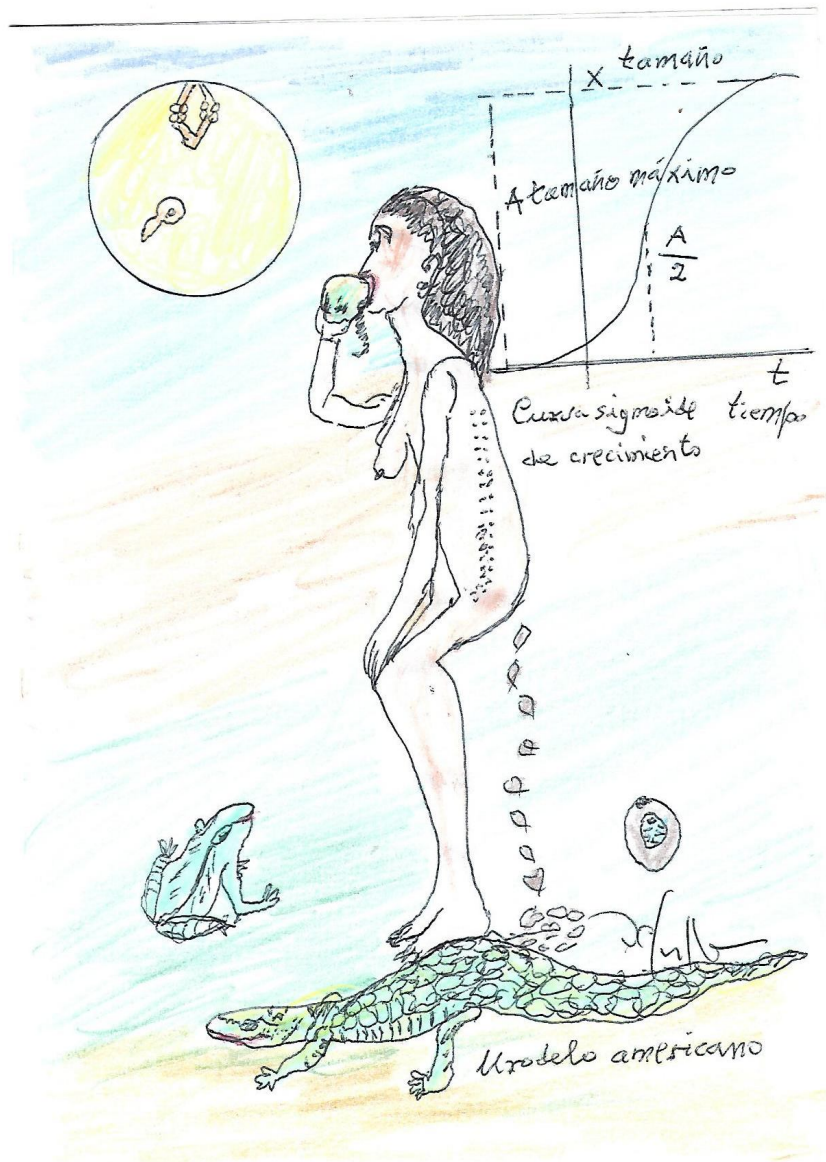 tamaño
X
A tamaño máximo
A
2
t
Curva sigmoide tiempo
de crecimiento
Urodelo americano